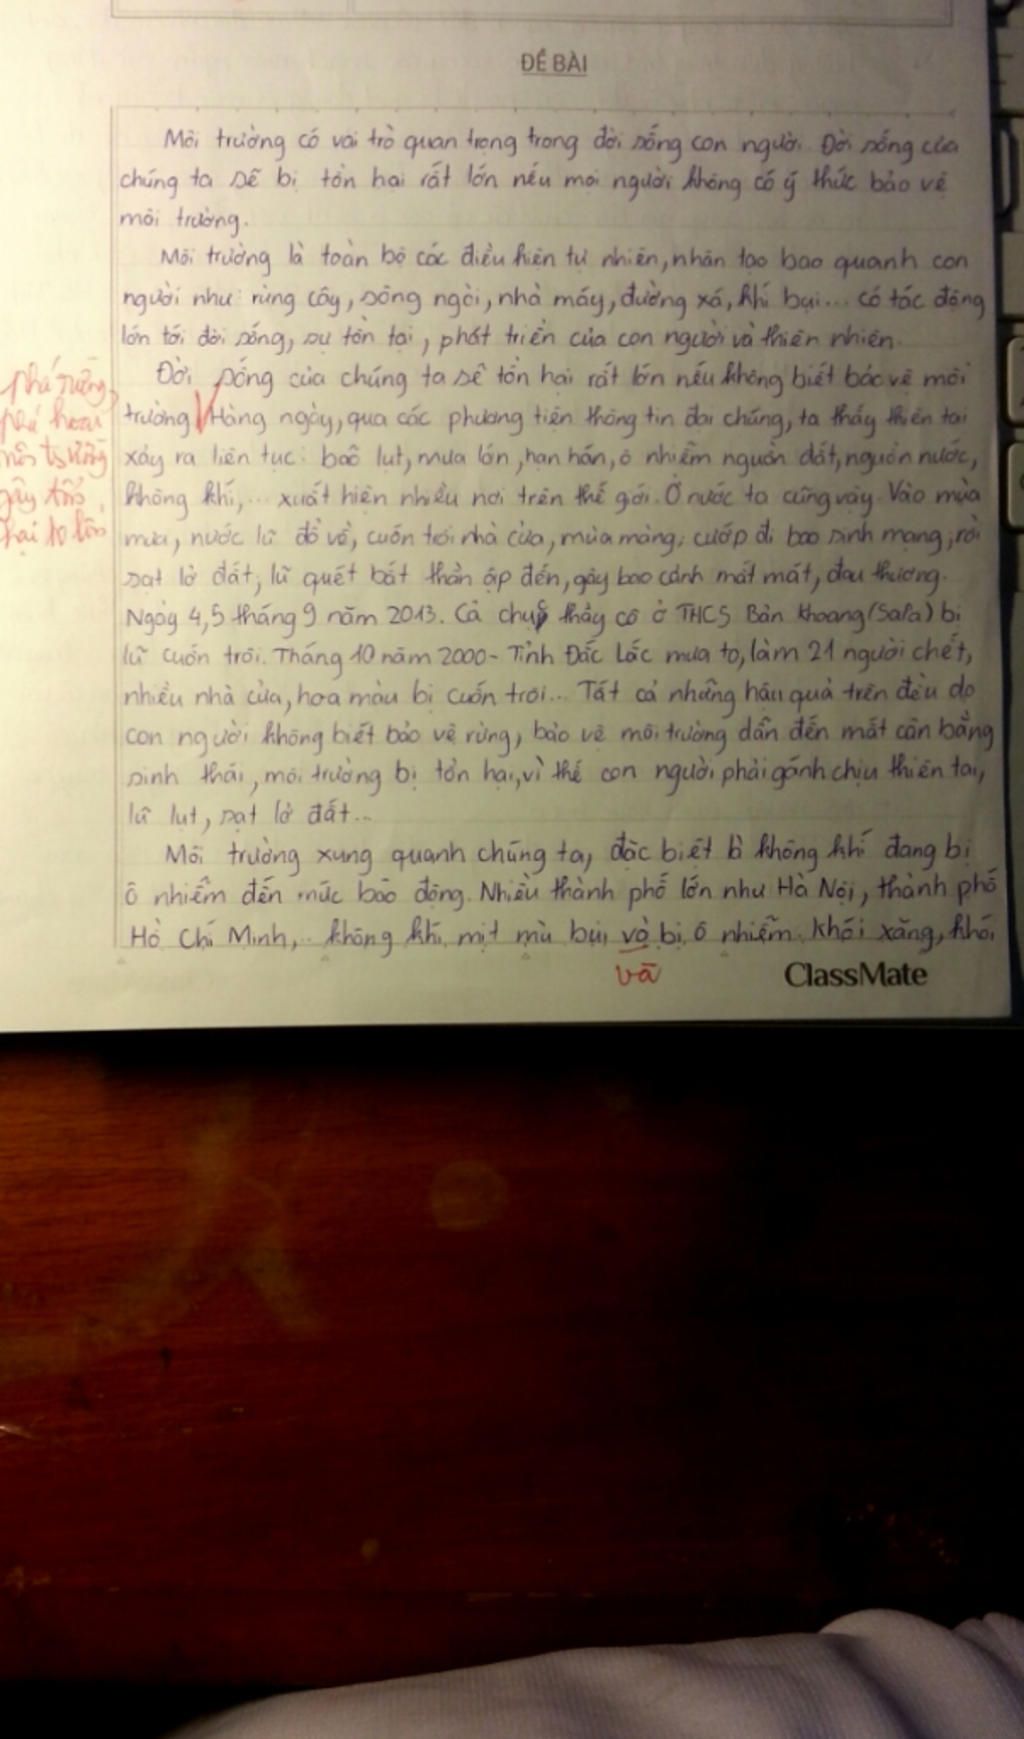 ĐỀ BÀI
Môi trường có vai trò quan trọng trong đời sống con người. Đời sống của
chúng ta sẽ bị tổn hại rất lớn nếu mọi người không có ý thức bảo vệ
môi trường.
Môi trường là toàn bộ các điều kiện tự nhiên, nhân tạo bao quanh con
người như: rừng cây, sông ngòi, nhà máy, đường xá, khí bụi... có tác động
lớn tới đời sống, sự tồn tại, phát triển của con người và thiên nhiên.
Đời sống của chúng ta sẽ tổn hại rất lớn nếu không biết bảo vệ môi
trường Hàng ngày, qua các phương tiện thông tin đại chúng, ta thấy thiên tai
xảy ra liên tục: bão lụt, mưa lớn, hạn hán, ô nhiễm nguồn đất, nguồn nước,
không khí,... xuất hiện nhiều nơi trên thế giới. Ở nước ta cũng vậy. Vào mùa
mưa, nước lũ đổ về, cuốn trôi nhà cửa, mùa màng, cướp đi bao sinh mạng, rồi
sạt lở đất, lũ quét bất thần ập đến, gây bao cảnh mất mát, đau thương.
Ngày 4,5 tháng 9 năm 2013. Cả thầy cô ở THCS Bản Khoang (SaPa) bị
lũ cuốn trôi. Tháng 10 năm 2000 - Tỉnh Đắc Lắc mưa to, làm 21 người chết,
nhiều nhà cửa, hoa màu bị cuốn trôi... Tất cả những hậu quả trên đều do
con người không biết bảo vệ rừng, bảo vệ môi trường dẫn đến mất cân bằng
sinh thái, môi trường bị tổn hại, vì thế con người phải gánh chịu thiên tai,
lũ lụt, sạt lở đất...
Môi trường xung quanh chúng ta, đặc biệt là không khí đang bị
ô nhiễm đến mức báo động. Nhiều thành phố lớn như Hà Nội, thành phố
Hồ Chí Minh,.. không khí mịt mù bụi vờ bị ô nhiễm. Khói xăng, khói
phá rừng,
phá hoại
môi trường
gây tổn
hại to lớn
và
ClassMate